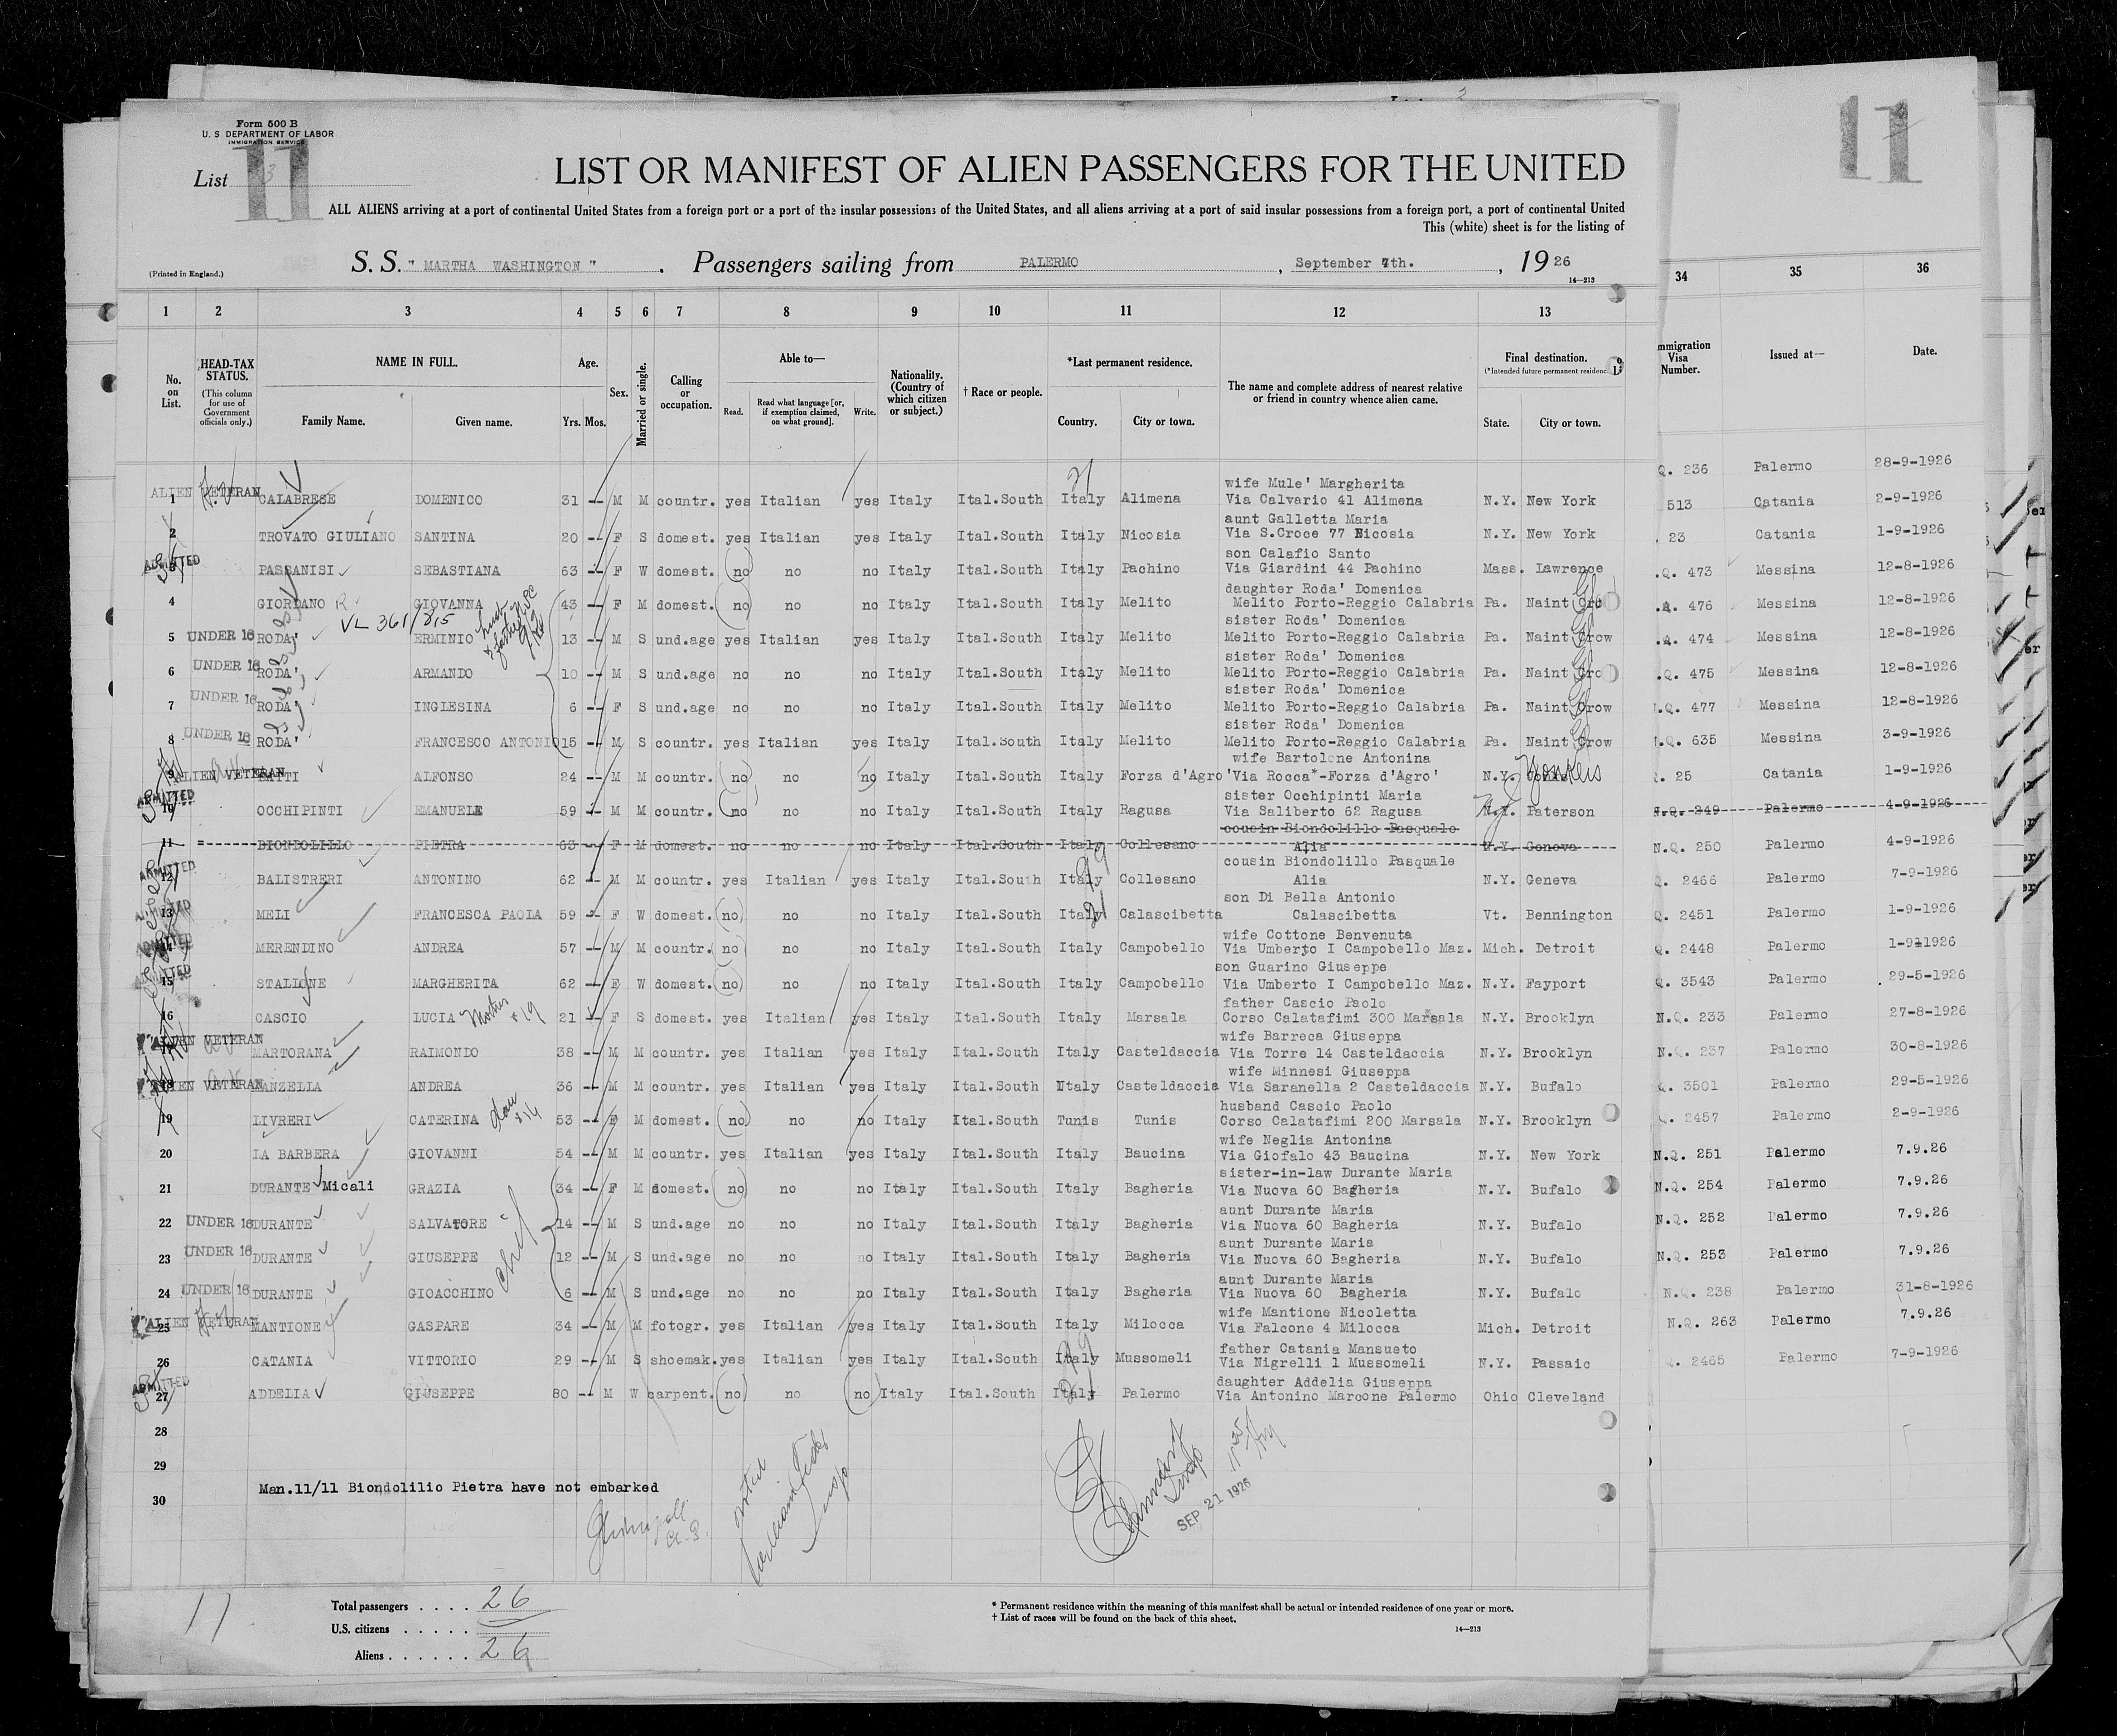 Form 500 B
U. S DEPARTMENT OF LABOR
IMMIGRATION SERVICE
List 3
11
11
LIST OR MANIFEST OF ALIEN PASSENGERS FOR THE UNITED
ALL ALIENS arriving at a port of continental United States from a foreign port or a port of the insular possessions of the United States, and all aliens arriving at a port of said insular possessions from a foreign port, a port of continental United
This (white) sheet is for the listing of
(Printed in England.)
S. S. " MARTHA WASHINGTON " . Passengers sailing from PALERMO , September 7th. , 19 26
14—213
1 2 3 4 5 6 7 8 9 10 11 12 13 34 35 36
No. on List.
HEAD-TAX STATUS.
(This column for use of Government officials only.)
NAME IN FULL.
Family Name. Given name.
Age.
Yrs. Mos.
Sex.
Married or single.
Calling or occupation.
Able to—
Read. Read what language [or, if exemption claimed, on what ground]. Write.
Nationality. (Country of which citizen or subject.)
† Race or people.
*Last permanent residence.
Country. City or town.
The name and complete address of nearest relative or friend in country whence alien came.
Final destination.
(*Intended future permanent residenc
State. City or town.
mmigration Visa Number.
Issued at—
Date.
Q. 236 Palermo 28-9-1926
wife Mule' Margherita
1 ALIEN VETERAN CALABRESE DOMENICO 31 -- M M countr. yes Italian yes Italy Ital.South Italy Alimena Via Calvario 41 Alimena N.Y. New York 513 Catania 2-9-1926
aunt Galletta Maria
2 TROVATO GIULIANO SANTINA 20 -- F S domest. yes Italian yes Italy Ital.South Italy Nicosia Via S.Croce 77 Nicosia N.Y. New York . 23 Catania 1-9-1926
son Calafio Santo
3 ADMITTED PASSANISI SEBASTIANA 63 -- F W domest. no no no Italy Ital.South Italy Pachino Via Giardini 44 Pachino Mass. Lawrence .Q. 473 Messina 12-8-1926
daughter Roda' Domenica
4 GIORDANO GIOVANNA 43 -- F M domest. no no no Italy Ital.South Italy Melito Melito Porto-Reggio Calabria Pa. Naint Cro .Q. 476 Messina 12-8-1926
VL 361/815
sister Roda' Domenica
5 UNDER 16 RODA' ERMINIO 13 -- M S und.age yes Italian yes Italy Ital.South Italy Melito Melito Porto-Reggio Calabria Pa. Naint Crow .Q. 474 Messina 12-8-1926
sister Roda' Domenica
6 UNDER 16 RODA' ARMANDO 10 -- M S und.age no no no Italy Ital.South Italy Melito Melito Porto-Reggio Calabria Pa. Naint Cro .Q. 475 Messina 12-8-1926
sister Roda' Domenica
7 UNDER 16 RODA' INGLESINA 6 -- F S und.age no no no Italy Ital.South Italy Melito Melito Porto-Reggio Calabria Pa. Naint Crow .Q. 477 Messina 12-8-1926
sister Roda' Domenica
8 UNDER 16 RODA' FRANCESCO ANTONIO 15 -- M S countr. yes Italian yes Italy Ital.South Italy Melito Melito Porto-Reggio Calabria Pa. Naint Crow .Q. 635 Messina 3-9-1926
wife Bartolone Antonina
9 ALIEN VETERAN ALFONSO 24 -- M M countr. no no no Italy Ital.South Italy Forza d'Agro' Via Rocca*-Forza d'Agro' N.Y. Yonkers . 25 Catania 1-9-1926
sister Occhipinti Maria
10 ADMITTED OCCHIPINTI EMANUELE 59 -- M M countr. no no no Italy Ital.South Italy Ragusa Via Saliberto 62 Ragusa N.J. Paterson N.Q. 249 Palermo 4-9-1926
cousin Biondolillo Pasquale
11 BIONDOLILLO PIETRA 63 -- F M domest. no no no Italy Ital.South Italy Collesano Alia N.Y. Geneva N.Q. 250 Palermo 4-9-1926
cousin Biondolillo Pasquale
12 ADMITTED BALISTRERI ANTONINO 62 -- M M countr. yes Italian yes Italy Ital.South Italy Collesano Alia N.Y. Geneva Q. 2466 Palermo 7-9-1926
son Di Bella Antonio
13 ADMITTED MELI FRANCESCA PAOLA 59 -- F W domest. no no no Italy Ital.South Italy Calascibetta Calascibetta Vt. Bennington Q. 2451 Palermo 1-9-1926
wife Cottone Benvenuta
14 ADMITTED MERENDINO ANDREA 57 -- M M countr. no no no Italy Ital.South Italy Campobello Via Umberto I Campobello Maz. Mich. Detroit Q. 2448 Palermo 1-9-1926
son Guarino Giuseppe
15 ADMITTED STALLONE MARGHERITA 62 -- F W domest. no no no Italy Ital.South Italy Campobello Via Umberto I Campobello Maz. N.Y. Fayport Q. 3543 Palermo 29-5-1926
father Cascio Paolo
16 CASCIO LUCIA Mother + 19 21 -- F S domest. yes Italian yes Italy Ital.South Italy Marsala Corso Calatafimi 300 Marsala N.Y. Brooklyn N.Q. 233 Palermo 27-8-1926
wife Barreca Giuseppa
ALIEN VETERAN MARTORANA RAIMONDO 38 -- M M countr. yes Italian yes Italy Ital.South Italy Casteldaccia Via Torre 14 Casteldaccia N.Y. Brooklyn N.Q. 237 Palermo 30-8-1926
wife Minnesi Giuseppa
18 ALIEN VETERAN MANZELLA ANDREA 36 -- M M countr. yes Italian yes Italy Ital.South Italy Casteldaccia Via Saranella 2 Casteldaccia N.Y. Bufalo Q. 3501 Palermo 29-5-1926
husband Cascio Paolo
19 LIVRERI CATERINA dau + 16 53 -- F M domest. no no no Italy Ital.South Tunis Tunis Corso Calatafimi 200 Marsala N.Y. Brooklyn Q. 2457 Palermo 2-9-1926
wife Neglia Antonina
20 LA BARBERA GIOVANNI 54 -- M M countr. yes Italian yes Italy Ital.South Italy Baucina Via Giofalo 43 Baucina N.Y. New York N.Q. 251 Palermo 7.9.26
sister-in-law Durante Maria
21 DURANTE Micali GRAZIA 34 -- F M domest. no no no Italy Ital.South Italy Bagheria Via Nuova 60 Bagheria N.Y. Bufalo N.Q. 254 Palermo 7.9.26
aunt Durante Maria
22 UNDER 16 DURANTE SALVATORE 14 -- M S und.age no no no Italy Ital.South Italy Bagheria Via Nuova 60 Bagheria N.Y. Bufalo N.Q. 252 Palermo 7.9.26
aunt Durante Maria
23 UNDER 16 DURANTE GIUSEPPE 12 -- M S und.age no no no Italy Ital.South Italy Bagheria Via Nuova 60 Bagheria N.Y. Bufalo N.Q. 253 Palermo 7.9.26
aunt Durante Maria
24 UNDER 16 DURANTE GIOACCHINO 6 -- M S und.age no no no Italy Ital.South Italy Bagheria Via Nuova 60 Bagheria N.Y. Bufalo N.Q. 238 Palermo 31-8-1926
wife Mantione Nicoletta
25 ALIEN VETERAN MANTIONE GASPARE 34 -- M M fotogr. yes Italian yes Italy Ital.South Italy Milocca Via Falcone 4 Milocca Mich. Detroit N.Q. 263 Palermo 7.9.26
father Catania Mansueto
26 CATANIA VITTORIO 29 -- M S shoemak. yes Italian yes Italy Ital.South Italy Mussomeli Via Nigrelli 1 Mussomeli N.Y. Passaic Q. 2465 Palermo 7-9-1926
daughter Addelia Giuseppa
27 ADMITTED ADDELIA GIUSEPPE 80 -- M W carpent. no no no Italy Ital.South Italy Palermo Via Antonino Marcone Palermo Ohio Cleveland
28
29
Man.11/11 Biondolilio Pietra have not embarked
30
SEP 21 1926
11
Total passengers . . . . 26
U.S. citizens . . . . .
Aliens . . . . . . 26
* Permanent residence within the meaning of this manifest shall be actual or intended residence of one year or more.
† List of races will be found on the back of this sheet.
14—213